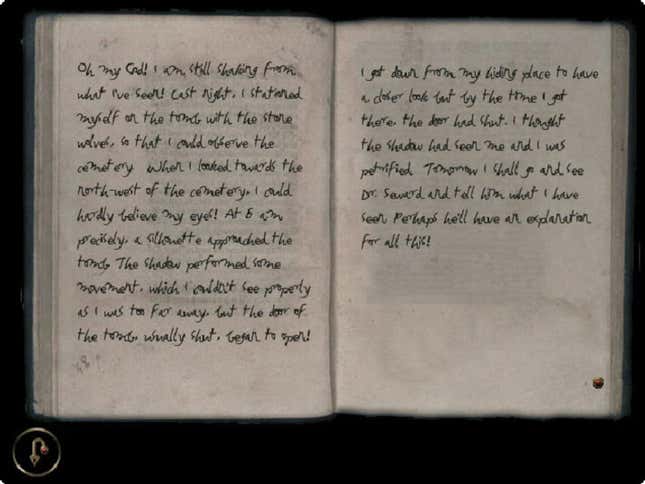 Oh my God! I am still shaking from
what I've seen! Last night, I stationed
myself on the tomb with the stone
wolves, so that I could observe the
cemetery. When I looked towards the
north-west of the cemetery, I could
hardly believe my eyes! At 5 a.m.
precisely, a silhouette approached the
tomb. The shadow performed some
movement, which I couldn't see properly
as I was too far away, but the door of
the tomb, usually shut, began to open!
I got down from my hiding place to have
a closer look but by the time I got
there, the door had shut. I thought
the shadow had seen me and I was
petrified. Tomorrow I shall go and see
Dr. Seward and tell him what I have
seen. Perhaps he'll have an explanation
for all this!